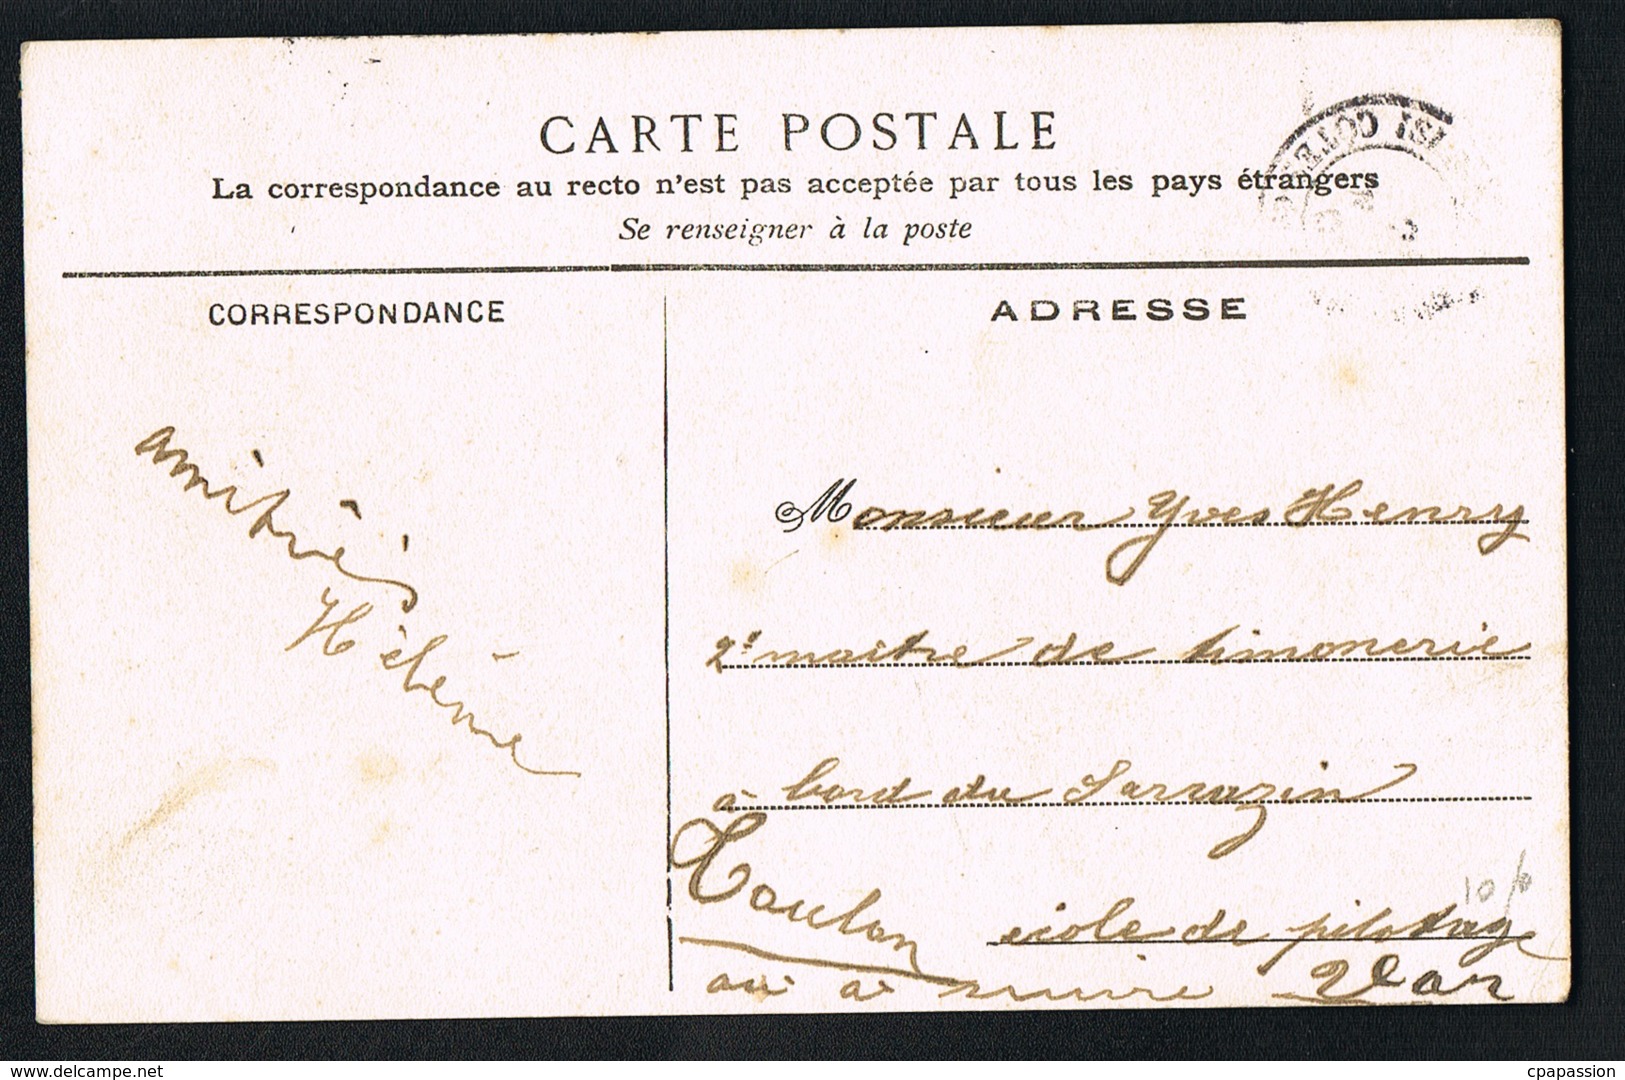 CARTE POSTALE
La correspondance au recto n'est pas acceptée par tous les pays étrangers
Se renseigner à la poste
CORRESPONDANCE
amitiés
Hélène
ADRESSE
Monsieur Yves Henry
2e maître de timonerie
à bord du Sarrazin
école de pilotage
Toulon
Var
10
Delcampe.net
cpapassion